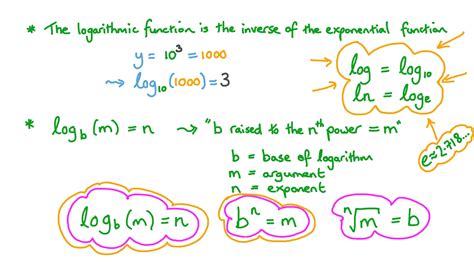 * The logarithmic function is the inverse of the exponential function
y = 10³ = 1000
⇝ log₁₀(1000) = 3
log = log₁₀
ln = logₑ
e≈2.718...
* log_b (m) = n ⇝ "b raised to the nᵗʰ power = m"
b = base of logarithm
m = argument
n = exponent
log_b (m) = n
bⁿ = m
ⁿ√m = b